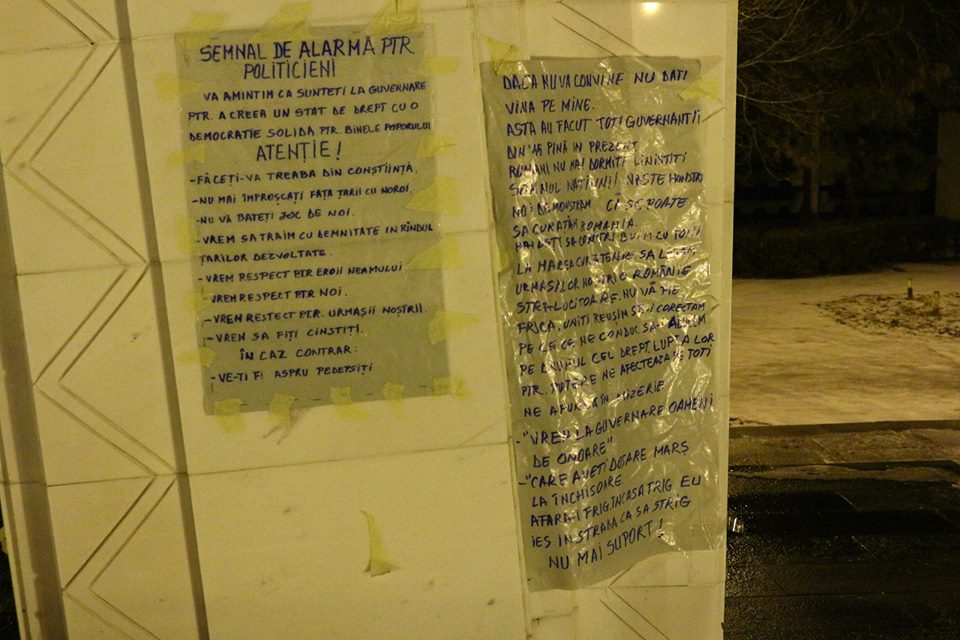 SEMNAL DE ALARMĂ PTR.
POLITICIENI
VA AMINTIM CA SUNTETI LA GUVERNARE
PTR. A CREEA UN STAT DE DREPT CU O
DEMOCRATIE SOLIDA PTR. BINELE POPORULUI
ATENȚIE!
-FĂCEȚI-VA TREABA DIN CONSTIINȚĂ.
-NU MAI ÎMPROȘCATI FAȚA ȚARII CU NOROI.
-NU VĂ BATEȚI JOC DE NOI.
-VREM SA TRAIM CU DEMNITATE IN RÎNDUL
ȚARILOR DEZVOLTATE.
-VREM RESPECT PTR EROII NEAMULUI
VREM RESPECT PTR NOI.
-VREM RESTECT PTR. URMAȘII NOSTRII
-VREM SA FIȚI CINSTIȚI.
ÎN CAZ CONTRAR:
-VE-TI FI ASPRU PEDEPSIȚI
DACA NU VA CONVINE NU DATI
VINA PE MINE.
ASTA AU FACUT TOTI GUVERNANTII
DIN PINĂ IN PREZENT
ROMÂNI NU MAI DORMITI LINISTITI
SOMNUL NATIUNII NASTE MONSTRI
NOI DEMONSTRAM CĂ SE POATE
SA CURATĂM ROMANIA.
HAIDETI SA CONTRIBUIM CU TOTII
LA MAREA CURATENIE SA LASAM
URMASILOR NOSTRI O ROMÂNIE
STRA-LUCITOARE. NU VĂ FIE
FRICA, UNITI REUSIM SA-I CORECTAM
PE CEI CE NE CONDUC SA-I ADUCEM
PE DRUMUL CEL DREPT. LUPTA LOR
PTR. PUTERE NE AFECTEAZA PE TOTI
NE AFUNDA IN MIZERIE
-"VREM LA GUVERNARE OAMENI
DE ONOARE"
-"CARE AVETI DOSARE MARȘ
LA ÎNCHISOARE
AFARA-I FRIG, ÎN CASA FRIG EU
IES IN STRADA CA SA STRIG
NU MAI SUPORT!